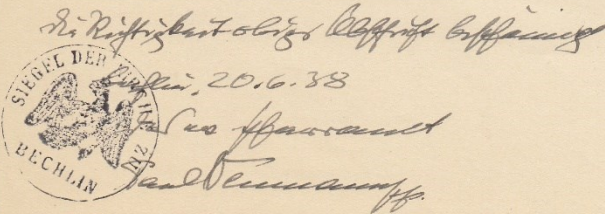 die Richtigkeit obiger Abschrift bescheinigt
Bechlin, 20.6.38
Das Pfarramt
Paul
SIEGEL DER KIRCHE
BECHLIN